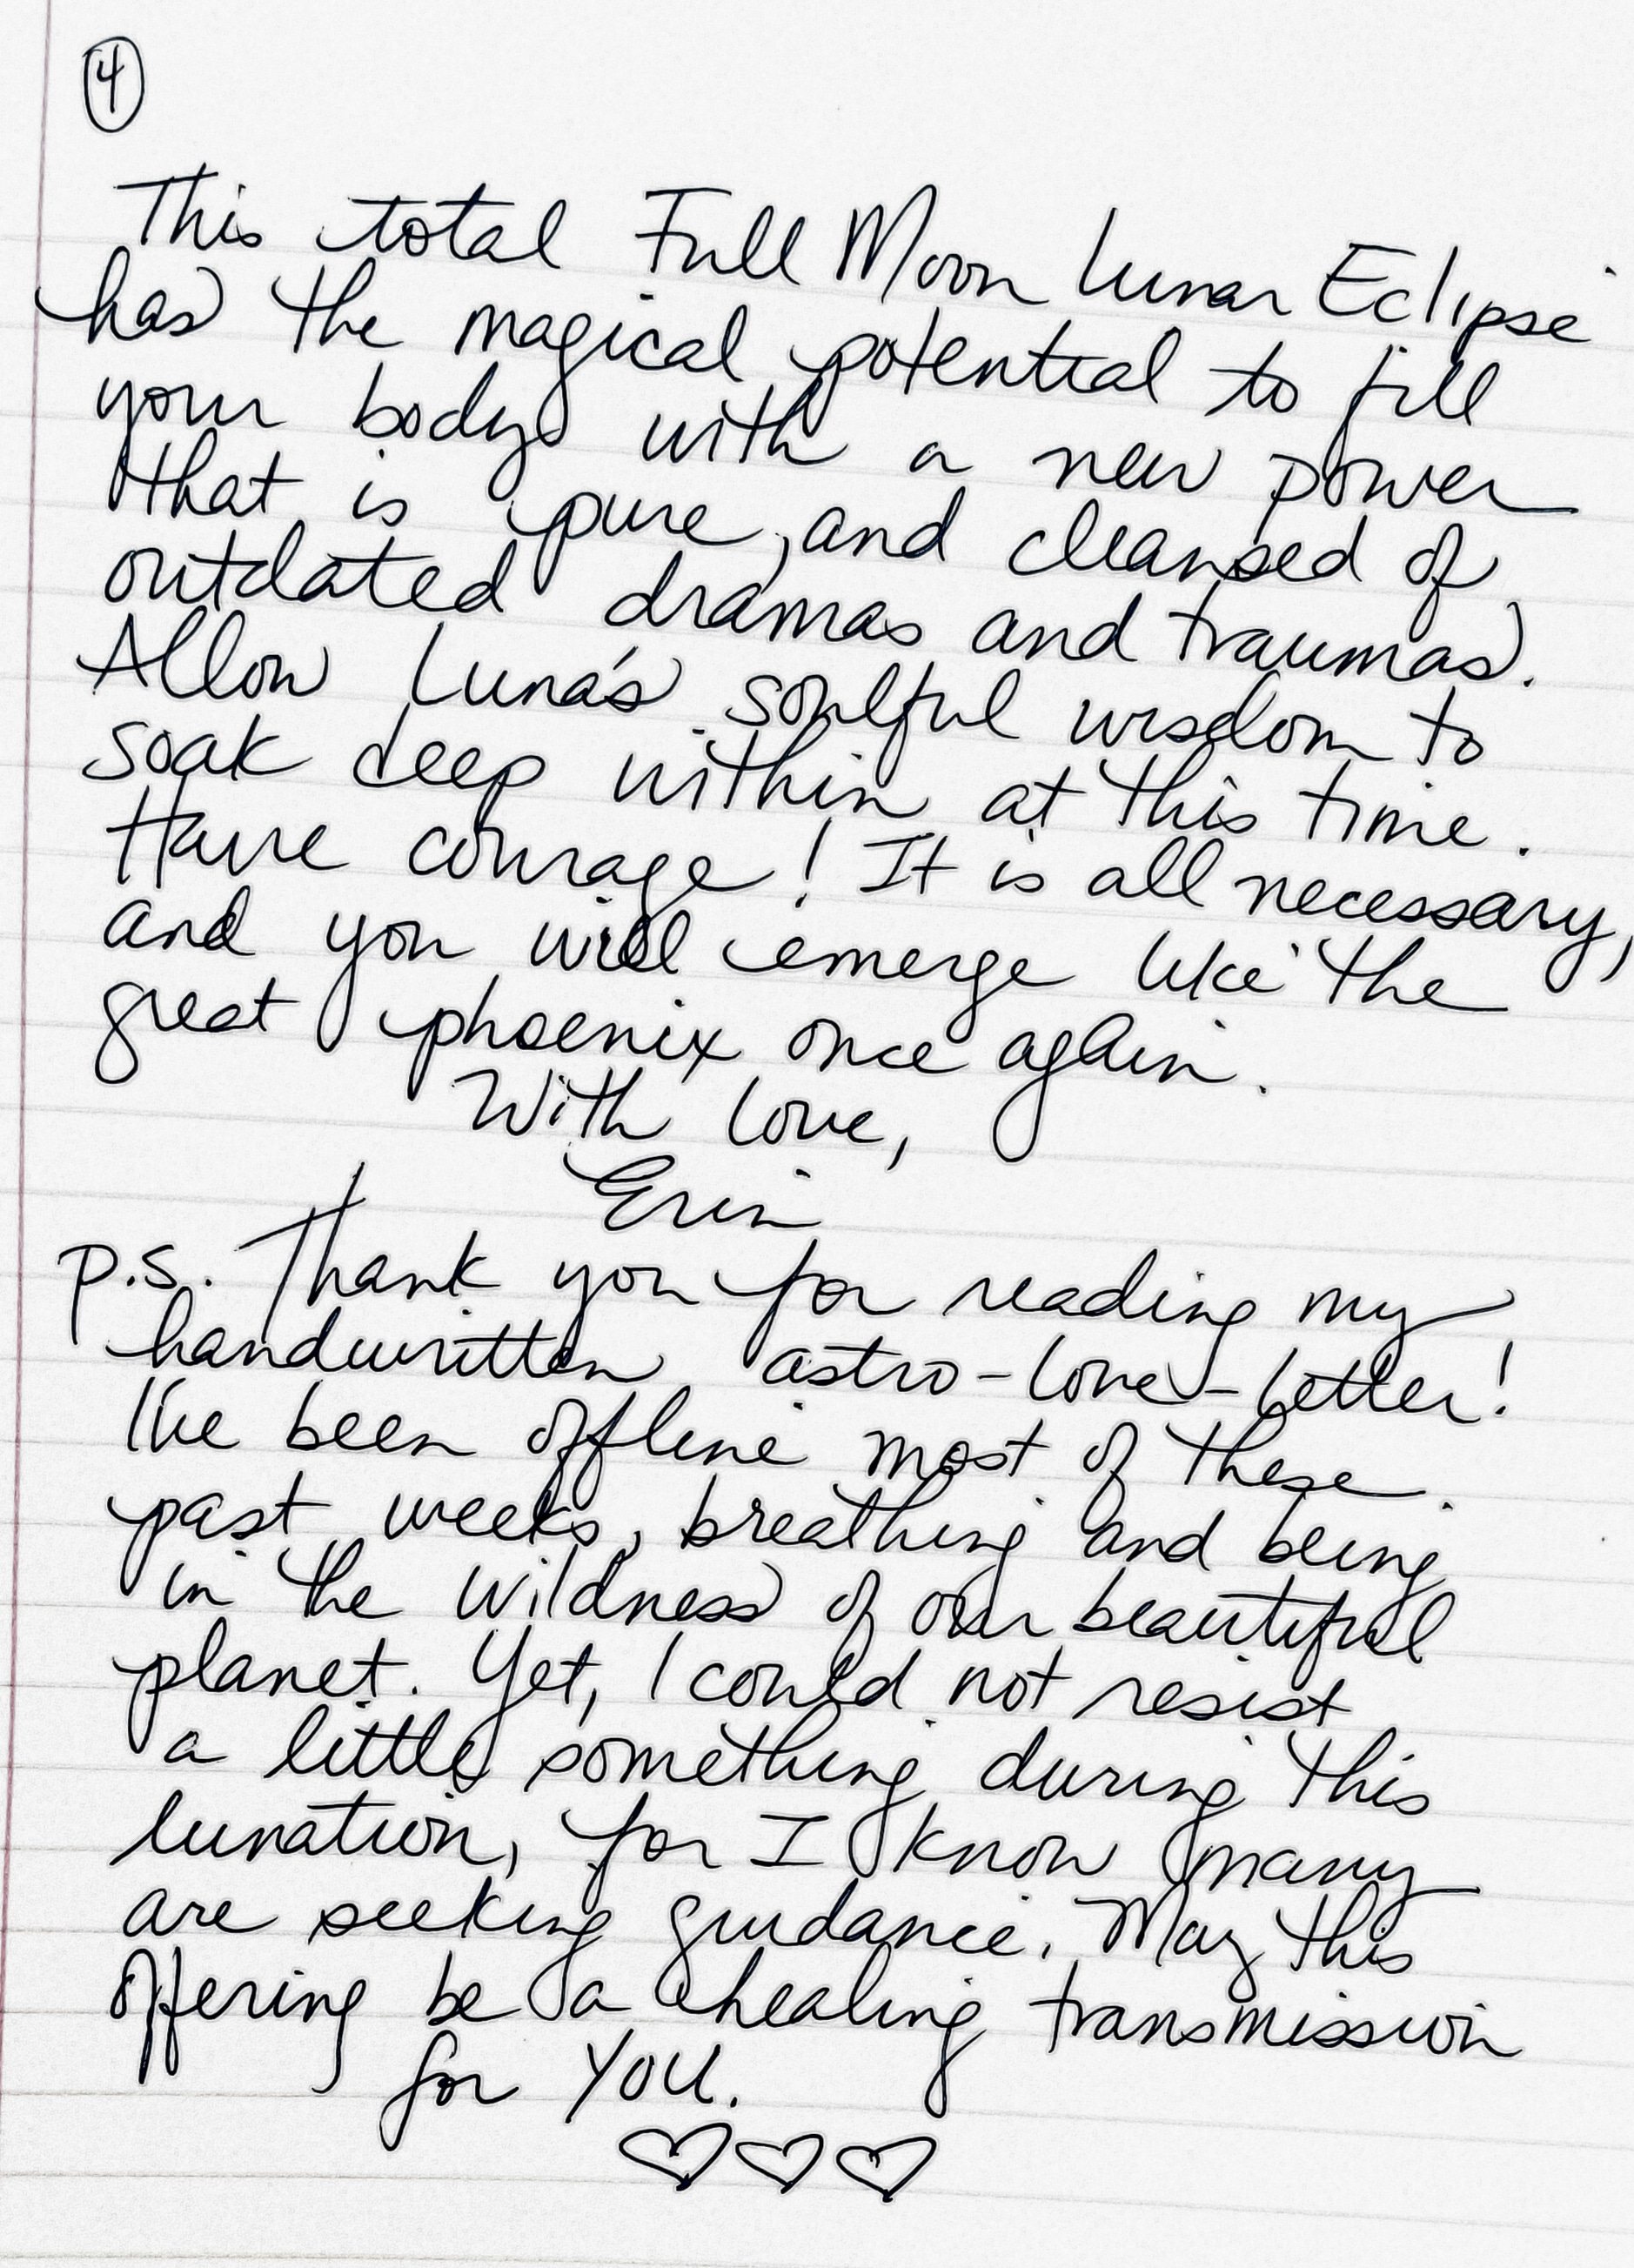 4
This total Full Moon Lunar Eclipse
has the magical potential to fill
your body with a new power
that is pure, and cleansed of
outdated dramas and traumas.
Allow Luna's soulful wisdom to
soak deep within at this time.
Have courage! It is all necessary,
and you will emerge like the
great phoenix once again.
With love,
Erin
P.S. Thank you for reading my
handwritten astro-love-letter!
I've been offline most of these
past weeks, breathing and being
in the wildness of our beautiful
planet. Yet, I could not resist
a little something during this
lunation, for I know many
are seeking guidance. May this
offering be a healing transmission
for YOU.